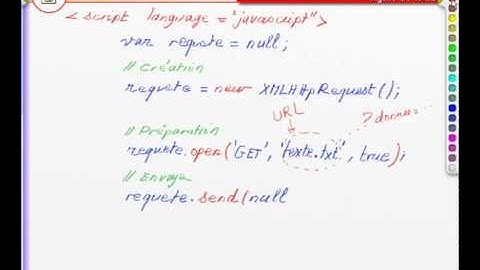 < script language = "javascript">
var requete = null;
// Création
requete = new XMLHttpRequest();
URL
? donnee=
// Préparation
requete.open('GET', 'texte.txt', true);
// Envoyer
requete.send(null